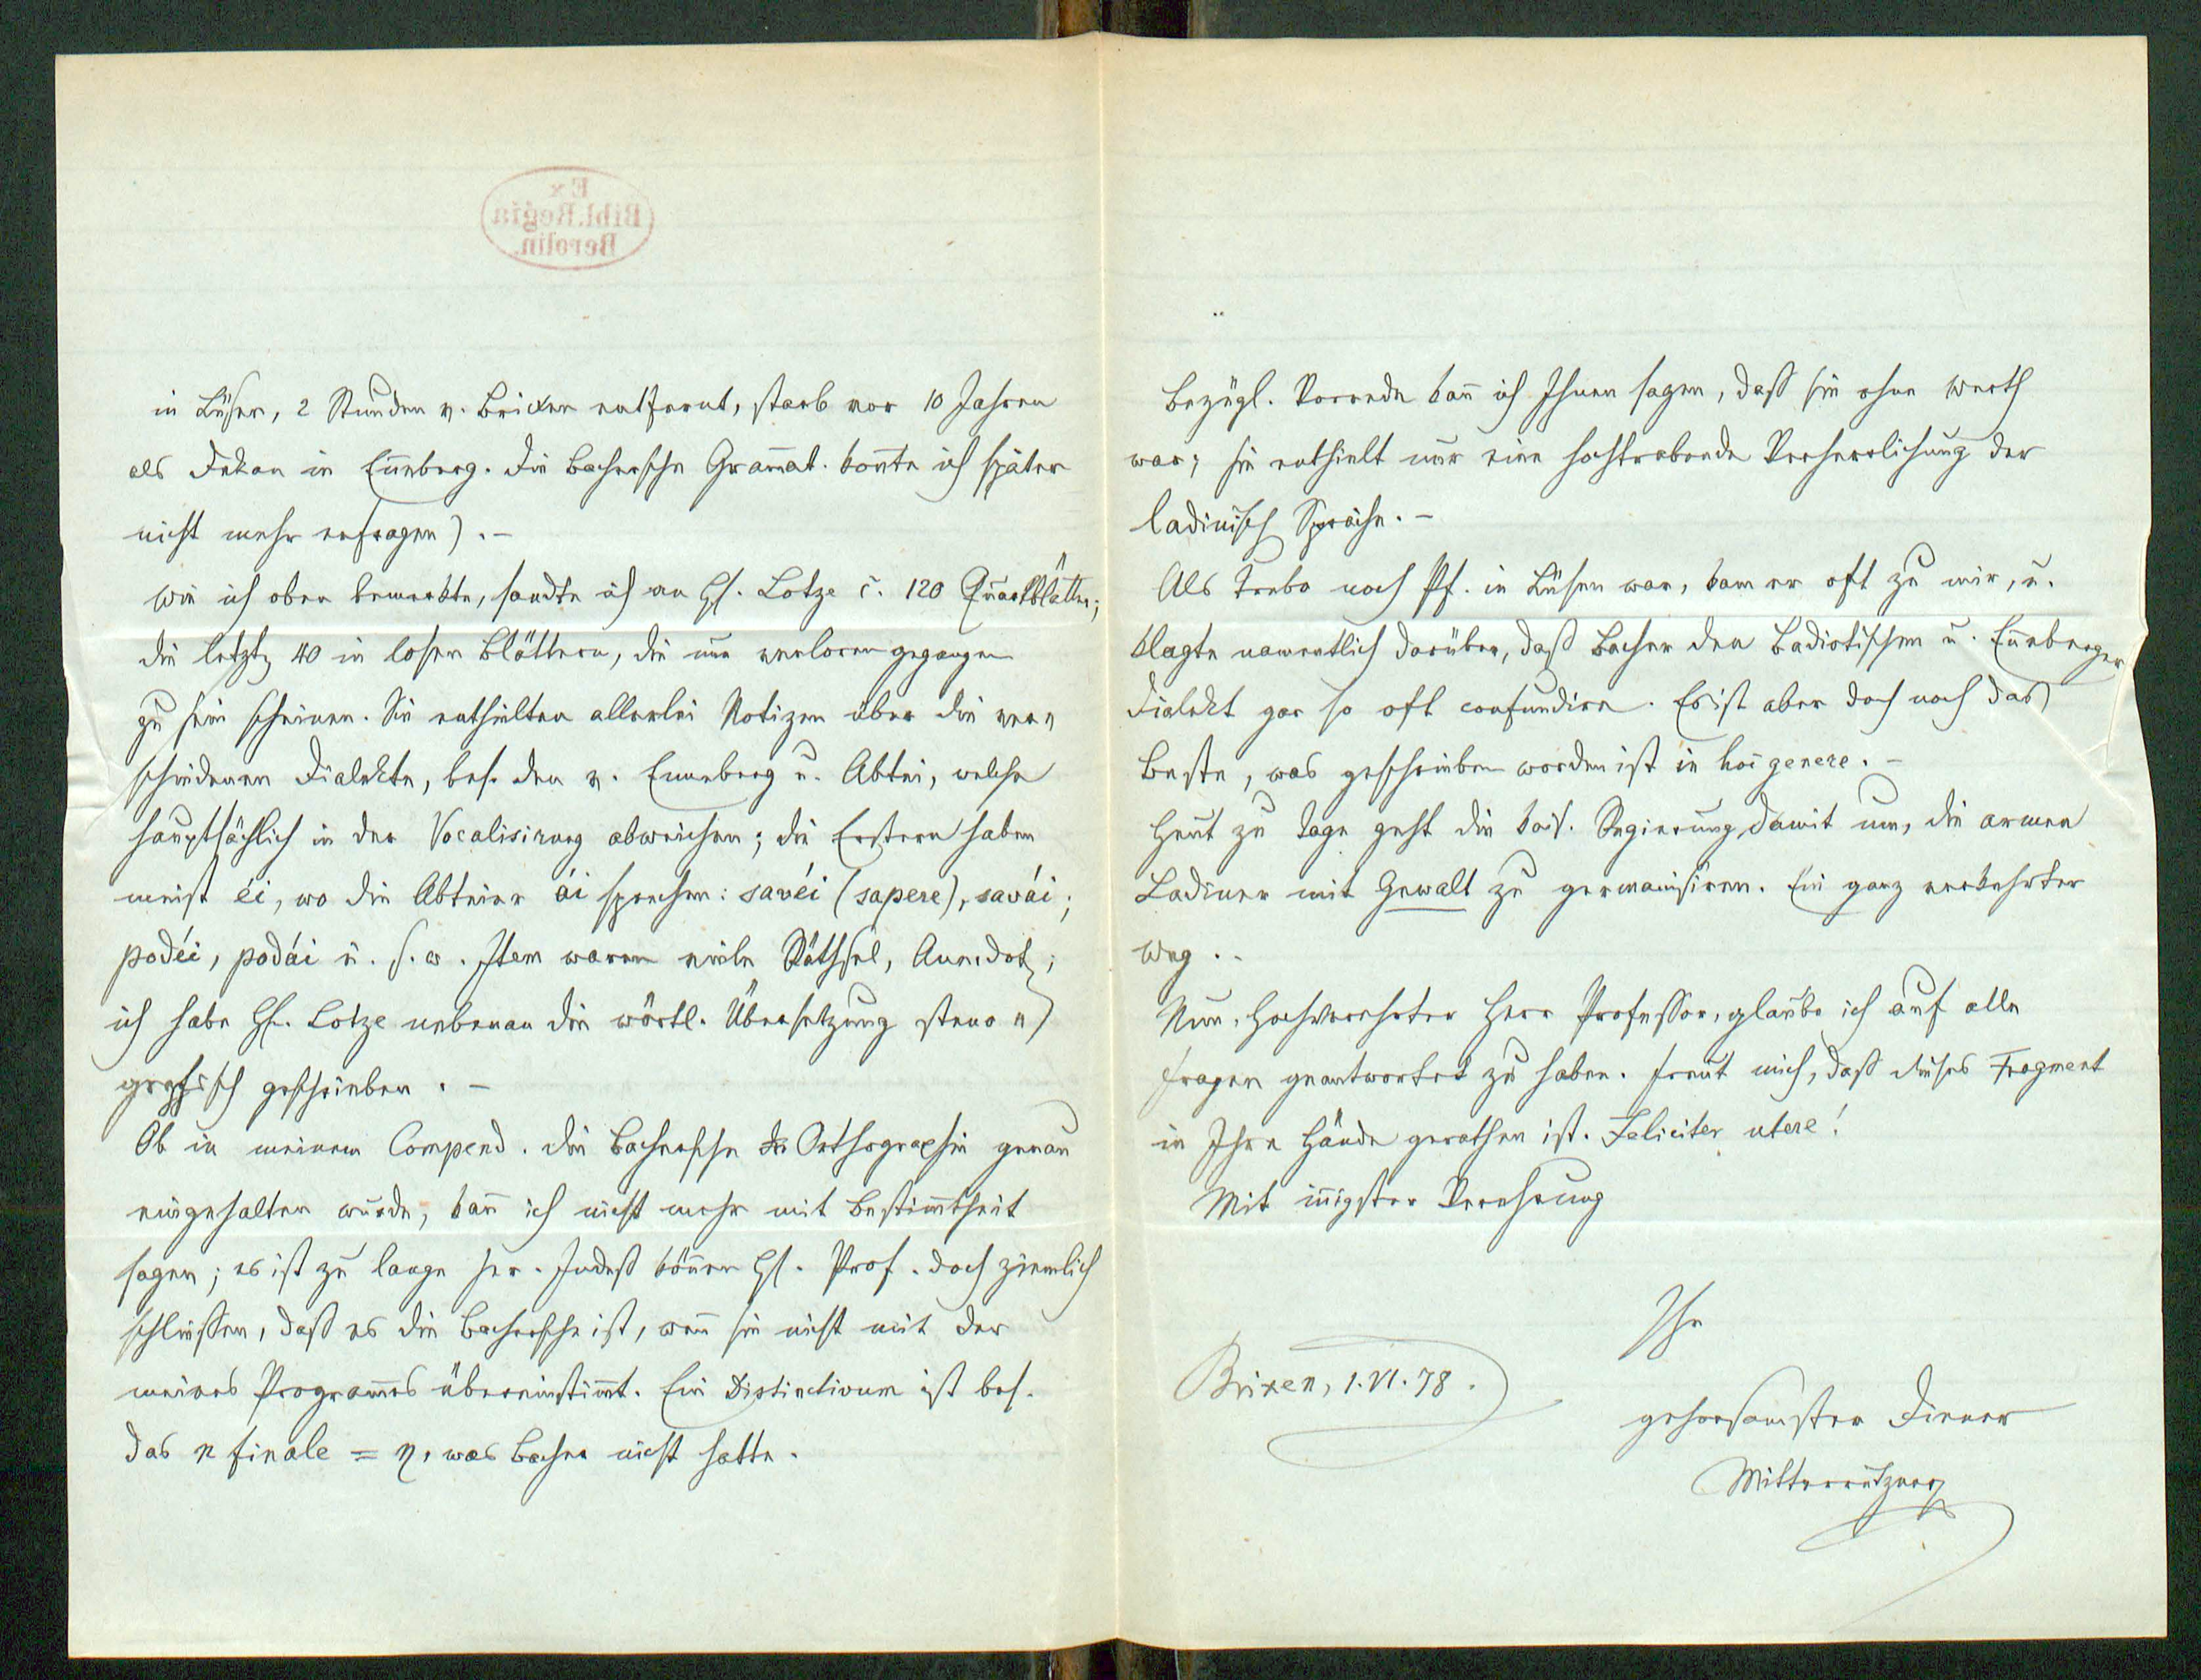 Ex
Bibl. Regia
Berolin.
in Lüsen, 2 Stunden v. Brixen entfernt, starb vor 10 Jahren
als Dekan in Eñeberg. Die Bachersche Gram̄at. koñte ich später
nicht mehr erfragen). –
Wie ich oben bemerkte, sandte ich an H. Lotze c. 120 Quartblätter;
die letzt 40 in losen Blättern, die nun verloren gegangen
zu sein scheinen. Sie enthielten allerlei Notizen über die ver-
schiedenen Dialekte, bes. den v. Enneberg u. Abtei, welche
hauptsächlich in der Vocalisirung abweichen; die Erstern haben
meist éi, wo die Abteier ái sprechen: savéi (sapere), savái;
podéi, podái u. s. w. Item waren viele Räthsel, Anecdot;
ich habe H. Lotze nebenan die wörtl. Übersetzung steno-
grafisch geschrieben. –
Ob in meinem Compend. die Bachersche Orthographie genau
eingehalten wurde, kañ ich nicht mehr mit Bestim̄theit
sagen; es ist zu lange her. Indeß köñen H. Prof. doch ziemlich
schließen, daß es die Bachersche ist, weñ sie nicht mit der
meines Program̄es übereinstim̄t. Ein Distinctivum ist bes.
das n finale = ŋ, was Bacher nicht hatte.
Bezügl. Vorrede kañ ich Ihnen sagen, daß sie ohne Werth
war; sie enthielt nur eine hochtrabende Verherrlichung der
ladinisch Sprache. –
Als Trebo noch Pf. in Lüsen war, kam er oft zu mir, u.
klagte namentlich darüber, daß Bacher den Badiotischen u. Eñeberger
Dialekt gar so oft confundire. Es ist aber doch noch das
Beste, was geschrieben worden ist in hoc genere. –
Heut zu Tage geht die kais. Regierung damit um, die armen
Ladiner mit Gewalt zu germanisiren. Ein ganz verkehrter
Weg. –
Nun, Hochverehrter Herr Professor, glaube ich auf alle
Fragen geantwortet zu haben. Freut mich, daß dieses Fragment
in Ihre Hände gerathen ist. Feliciter utere!
Mit iñigster Verehrung
Ihr
Brixen, 1. VI. 78.
gehorsamster Diener
Mitterrutzner